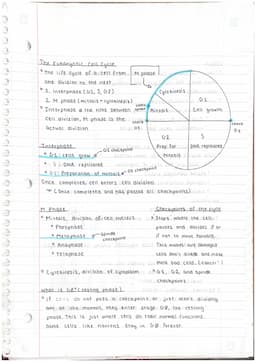 The Eukaryotic Cell Cycle
* The life cycle of a cell from
one division to the next
M phase
* 1. Interphase (G1, S, G2)
2. M phase (mitosis + cytokinesis)
* Interphase is the time between
cell division, M phase is the
actual division
Cytokinesis
Mitosis
G1
Cell growth
G2
Prep for
Mitosis
S
DNA replicated
Interphase
* G1: Cell grow
G1 checkpoint
* S: DNA replicated
* G2: Preparation of mitosis
G2 checkpoint
Once completed, cell enters cell division
(Once completed and has passed all checkpoints)
M Phase
* Mitosis, division of cell nucleus
* Prophase
* Metaphase
spindle
checkpoint
* Anaphase
* Telophase
* Cytokinesis, division of cytoplasm
Checkpoints of the cycle
* Stops where the cell
pauses and decides if
or not to move forward.
This makes sure damaged
cells don't divide and make
more bad cells
* G1, G2, and spindle
checkpoints
What is G0? (resting phase)
* If cells do not pass a checkpoint or just aren't dividing
any at the moment, they enter stage G0, the resting
phase. This is just where they do their normal functions.
Some cells like neurons stay in G0 forever.